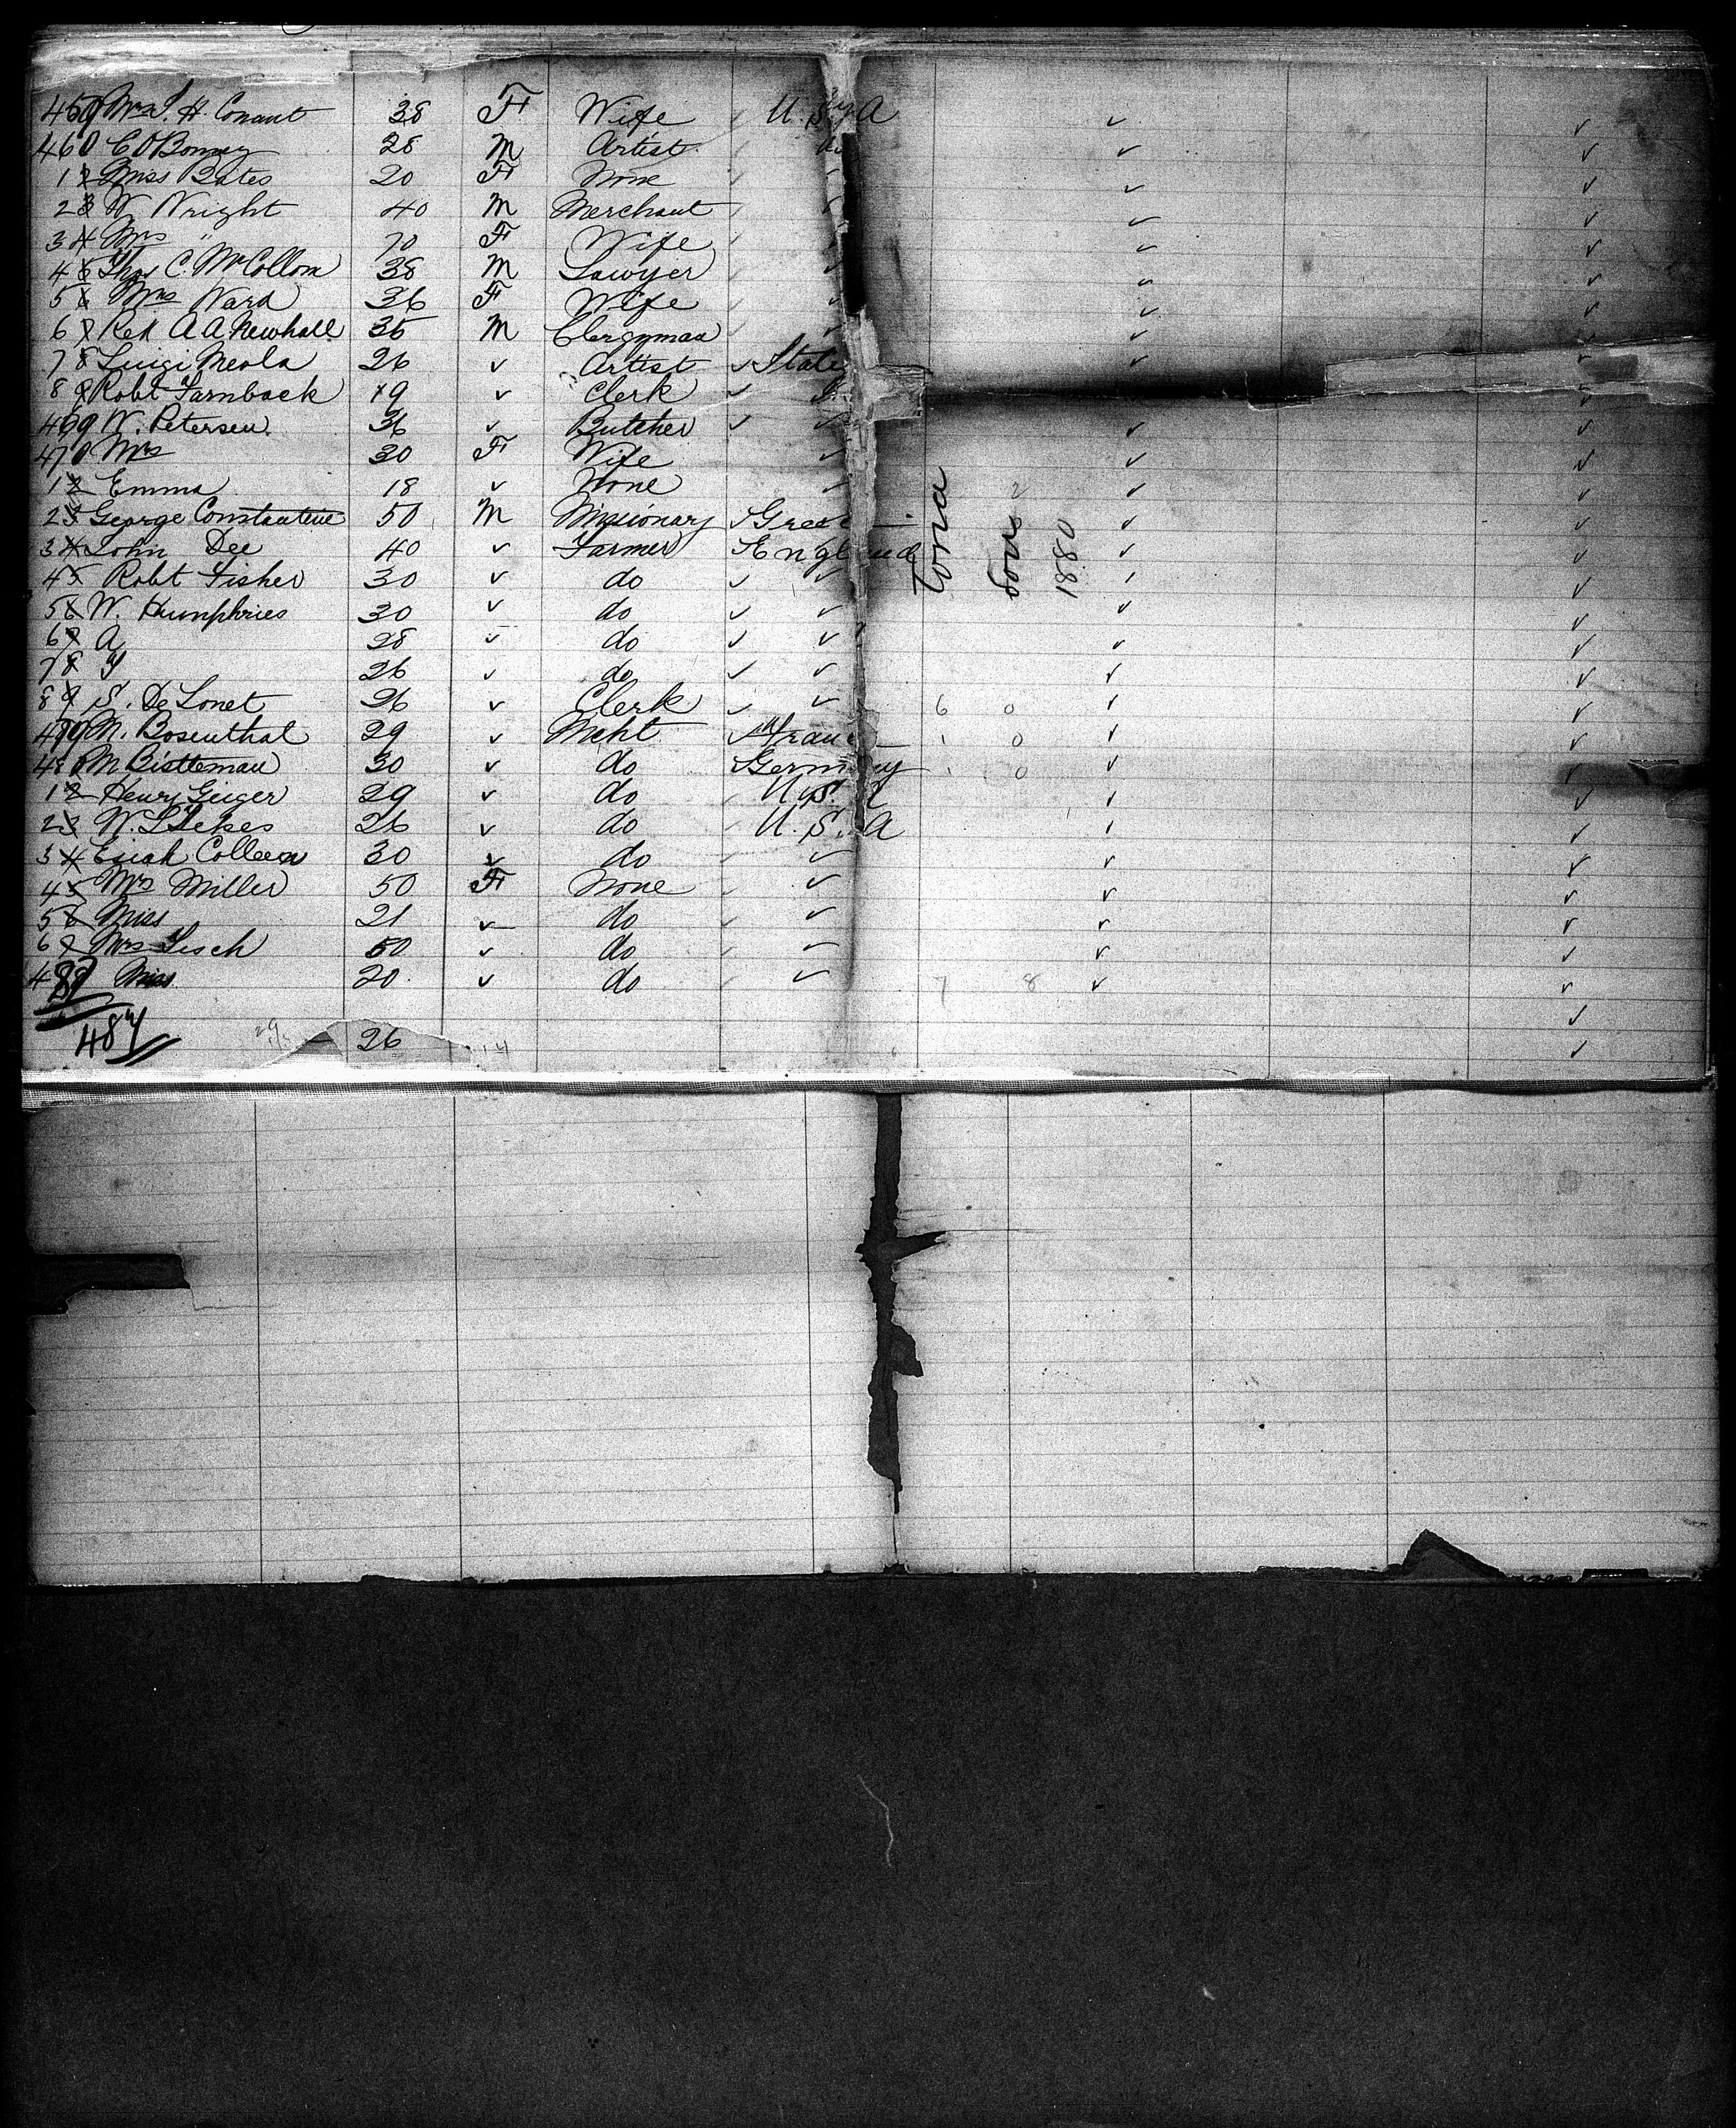 459 Mrs S. H. Conant 38 F Wife U. S. A
460 C O Bonney 28 M Artist
1 Miss Bates 20 F None
2 W Wright 40 M Merchant
3 Mrs " 70 F Wife
4 Thos C. McCollom 38 M Lawyer
5 Mrs Ward 36 F Wife
6 Rev A A Newhall 35 M Clergyman
7 Luigi Meola 26 ✓ Artist ✓
8 Robt Farnback 19 ✓ Clerk ✓
469 W. Petersen 36 ✓ Butcher ✓ ✓
470 Mrs 30 F Wife ✓
1 Emma 18 ✓ None ✓
2 George Constantine 50 M Missionary ✓
3 John Dee 40 ✓ Farmer England
4 Robt Fisher 30 ✓ do ✓ ✓
5 W. Humphries 30 ✓ do ✓ ✓
6 A 28 ✓ do ✓ ✓
7 Y 26 ✓ do ✓ ✓
8 S. De Lonet 26 ✓ Clerk ✓ ✓ 6 0
479 M. Bosenthal 29 ✓ Mcht 1 0
480 M Bistteman 30 ✓ do Germany 1 0
1 Henry Geiger 29 ✓ do U. S. A
2 26 ✓ do U. S. A
3 Colleen 30 ✓ do ✓
4 Mrs Miller 50 F None ✓
5 Miss 21 ✓ do ✓
6 Mrs Lisch 50 ✓ do ✓
487 Miss 20 ✓ do ✓ 7 8
487 26
1880